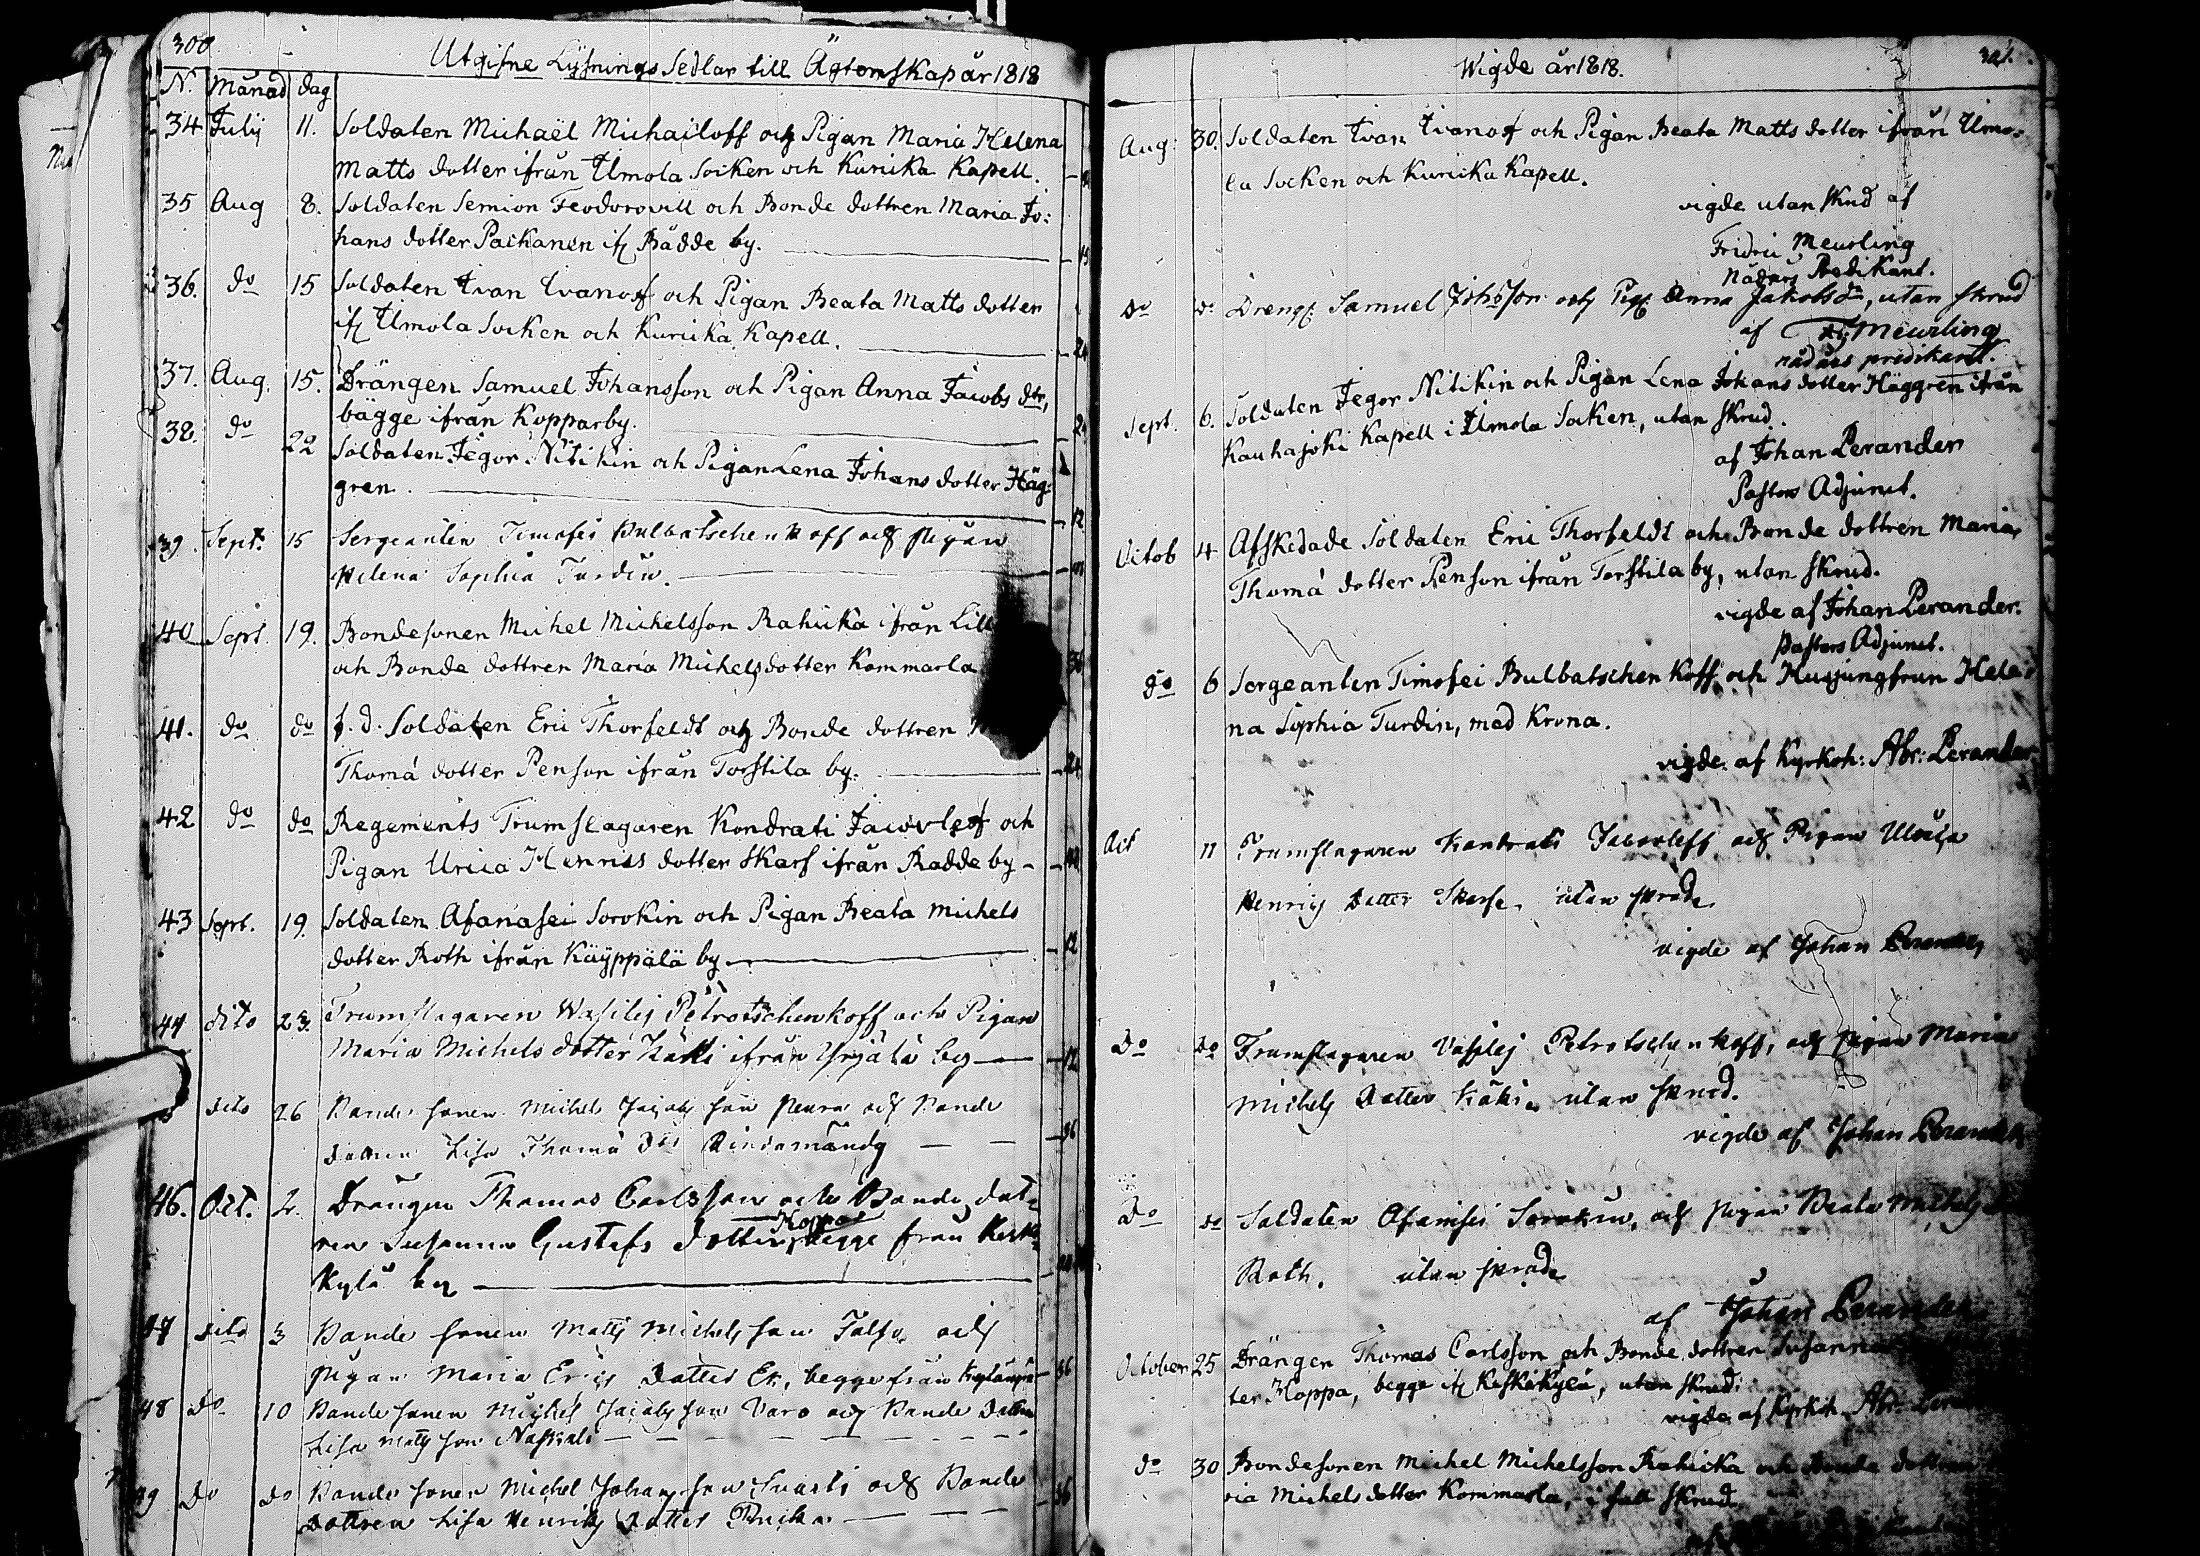 300
Utgifne Lysnings Sedlar till Ägtenskap år 1818
N. Månad dag
34 July 11. Soldaten Michaël Michailoff och Pigan Maria Helena
Matts dotter ifrån Ilmola Socken och Kurika Kapell.
35 Aug 8. Soldaten Semion Feodorovill och Bonde dottren Maria Jo:
hans dotter Paikanen if Bådde by.
36. do 15 Soldaten Ivan Ivanoff och Pigan Beata Matts dotter
if Ilmola Socken och Kurika Kapell. 24
37. Aug. 15. Drängen Samuel Johansson och Pigan Anna Jacobs dtr,
bägge ifrån Kopparby. 24
38. do 22 Soldaten Jegor Nitikin och Pigan Lena Johans dotter Häg:
gren. 12
39. Sept. 15 Sergeanten Timofei Bulbatschenkoff och Pigan
Helena Sophia Turdin.
40 Sept. 19. Bondesonen Michel Michelsson Rahicka ifrån Lill
och Bonde dottren Maria Michelsdotter Kommarla 36
41. do do f.d. Soldaten Eric Thorfeldt och Bonde dottren
Thomæ dotter Penson ifrån Torstila by. 24
42 do do Regements Trumslagaren Kondrati Jacovleff och
Pigan Urica Henrics dotter Skarf ifrån Radde by
43 Sept. 19. Soldaten Afanasei Sorokin och Pigan Beata Michels
dotter Roth ifrån Käyppälä by 12
44 dito 23. Trumslagaren Wasilej Petrotschenkoff och Pigan
Maria Michels dotter Käki ifrån Yrjälä by 12
dito 26 Bonde sonen Michels Jacobs son Peura och Bonde
dottren Lisa Thomæ dtr 36
46. Oct. 2. Drängen Thomas Carlsson och Bonde dot:
ren Susanna Gustafs dotter Hoppa begge från Keski
kylä by
47 dito 3 Bonde sonen Matts Michels son Talso och
Pigan Maria Erics Dotter Ek, begge från 36
48 Do 10 Bonde sonen Michel Jacobs son Varo och Bonde Dottren
Lisa Matts son
49 Do Do Bonde sonen Michel Johans son och Bonde 36
Dottren Lisa Henrics Dotter
301.
Wigde år 1818.
Aug: 30. Soldaten Ivan Ivanoff och Pigan Beata Matts dotter ifrån Ilmo:
la Socken och Kurika Kapell.
vigde utan skrud af
Fridric Meurling
Nådårs Predikant.
Do do Dreng. Samuel Johsson och Pig. Anna Jakobsdr, utan skrud
af Fr. Meurling
nådårs predikant.
Sept. 6. Soldaten Jegor Nitikin och Pigan Lena Johans dotter Häggren ifrån
Kauhajoki Kapell i Ilmola Socken, utan skrud.
af Johan Perander
Pastors Adjunct.
Octob 4 Afskedade Soldaten Eric Thorfeldt och Bonde dottren Maria
Thomæ dotter Penson ifrån Torstila by, utan skrud.
vigde af Johan Perander.
Pastors Adjunct.
do 6 Sergeanten Timofei Bulbatschenkoff och Husjungfrun Hele:
na Sophia Turdin, med Krona.
vigde af Kyrkoh: Abr: Perander
Oct 11 Trumslagaren Kondrati Jacovleff och Pigan Ulrica
Henrics Dotter Skarf. utan skrud.
vigde af Johan Perander
Do do Trumslagaren Vasilej Petrotschenkoff, och Pigan Maria
Michels Dotter Käki. utan skrud.
vigde af Johan Perander
Do do Soldaten Afanisei Sorokin, och Pigan Beata Michels
Roth. utan skrud
af Johan Perander
October 25 Drängen Thomas Carlsson och Bonde dottren Susanna
ter Hoppa, begge if Keskikylä, utan skrud.
vigde af Kyrkoh. Abr: Perander
do 30 Bondesonen Michel Michelsson Rahicka och Bonde dottren
ria Michels dotter Kommarla, i full skrud